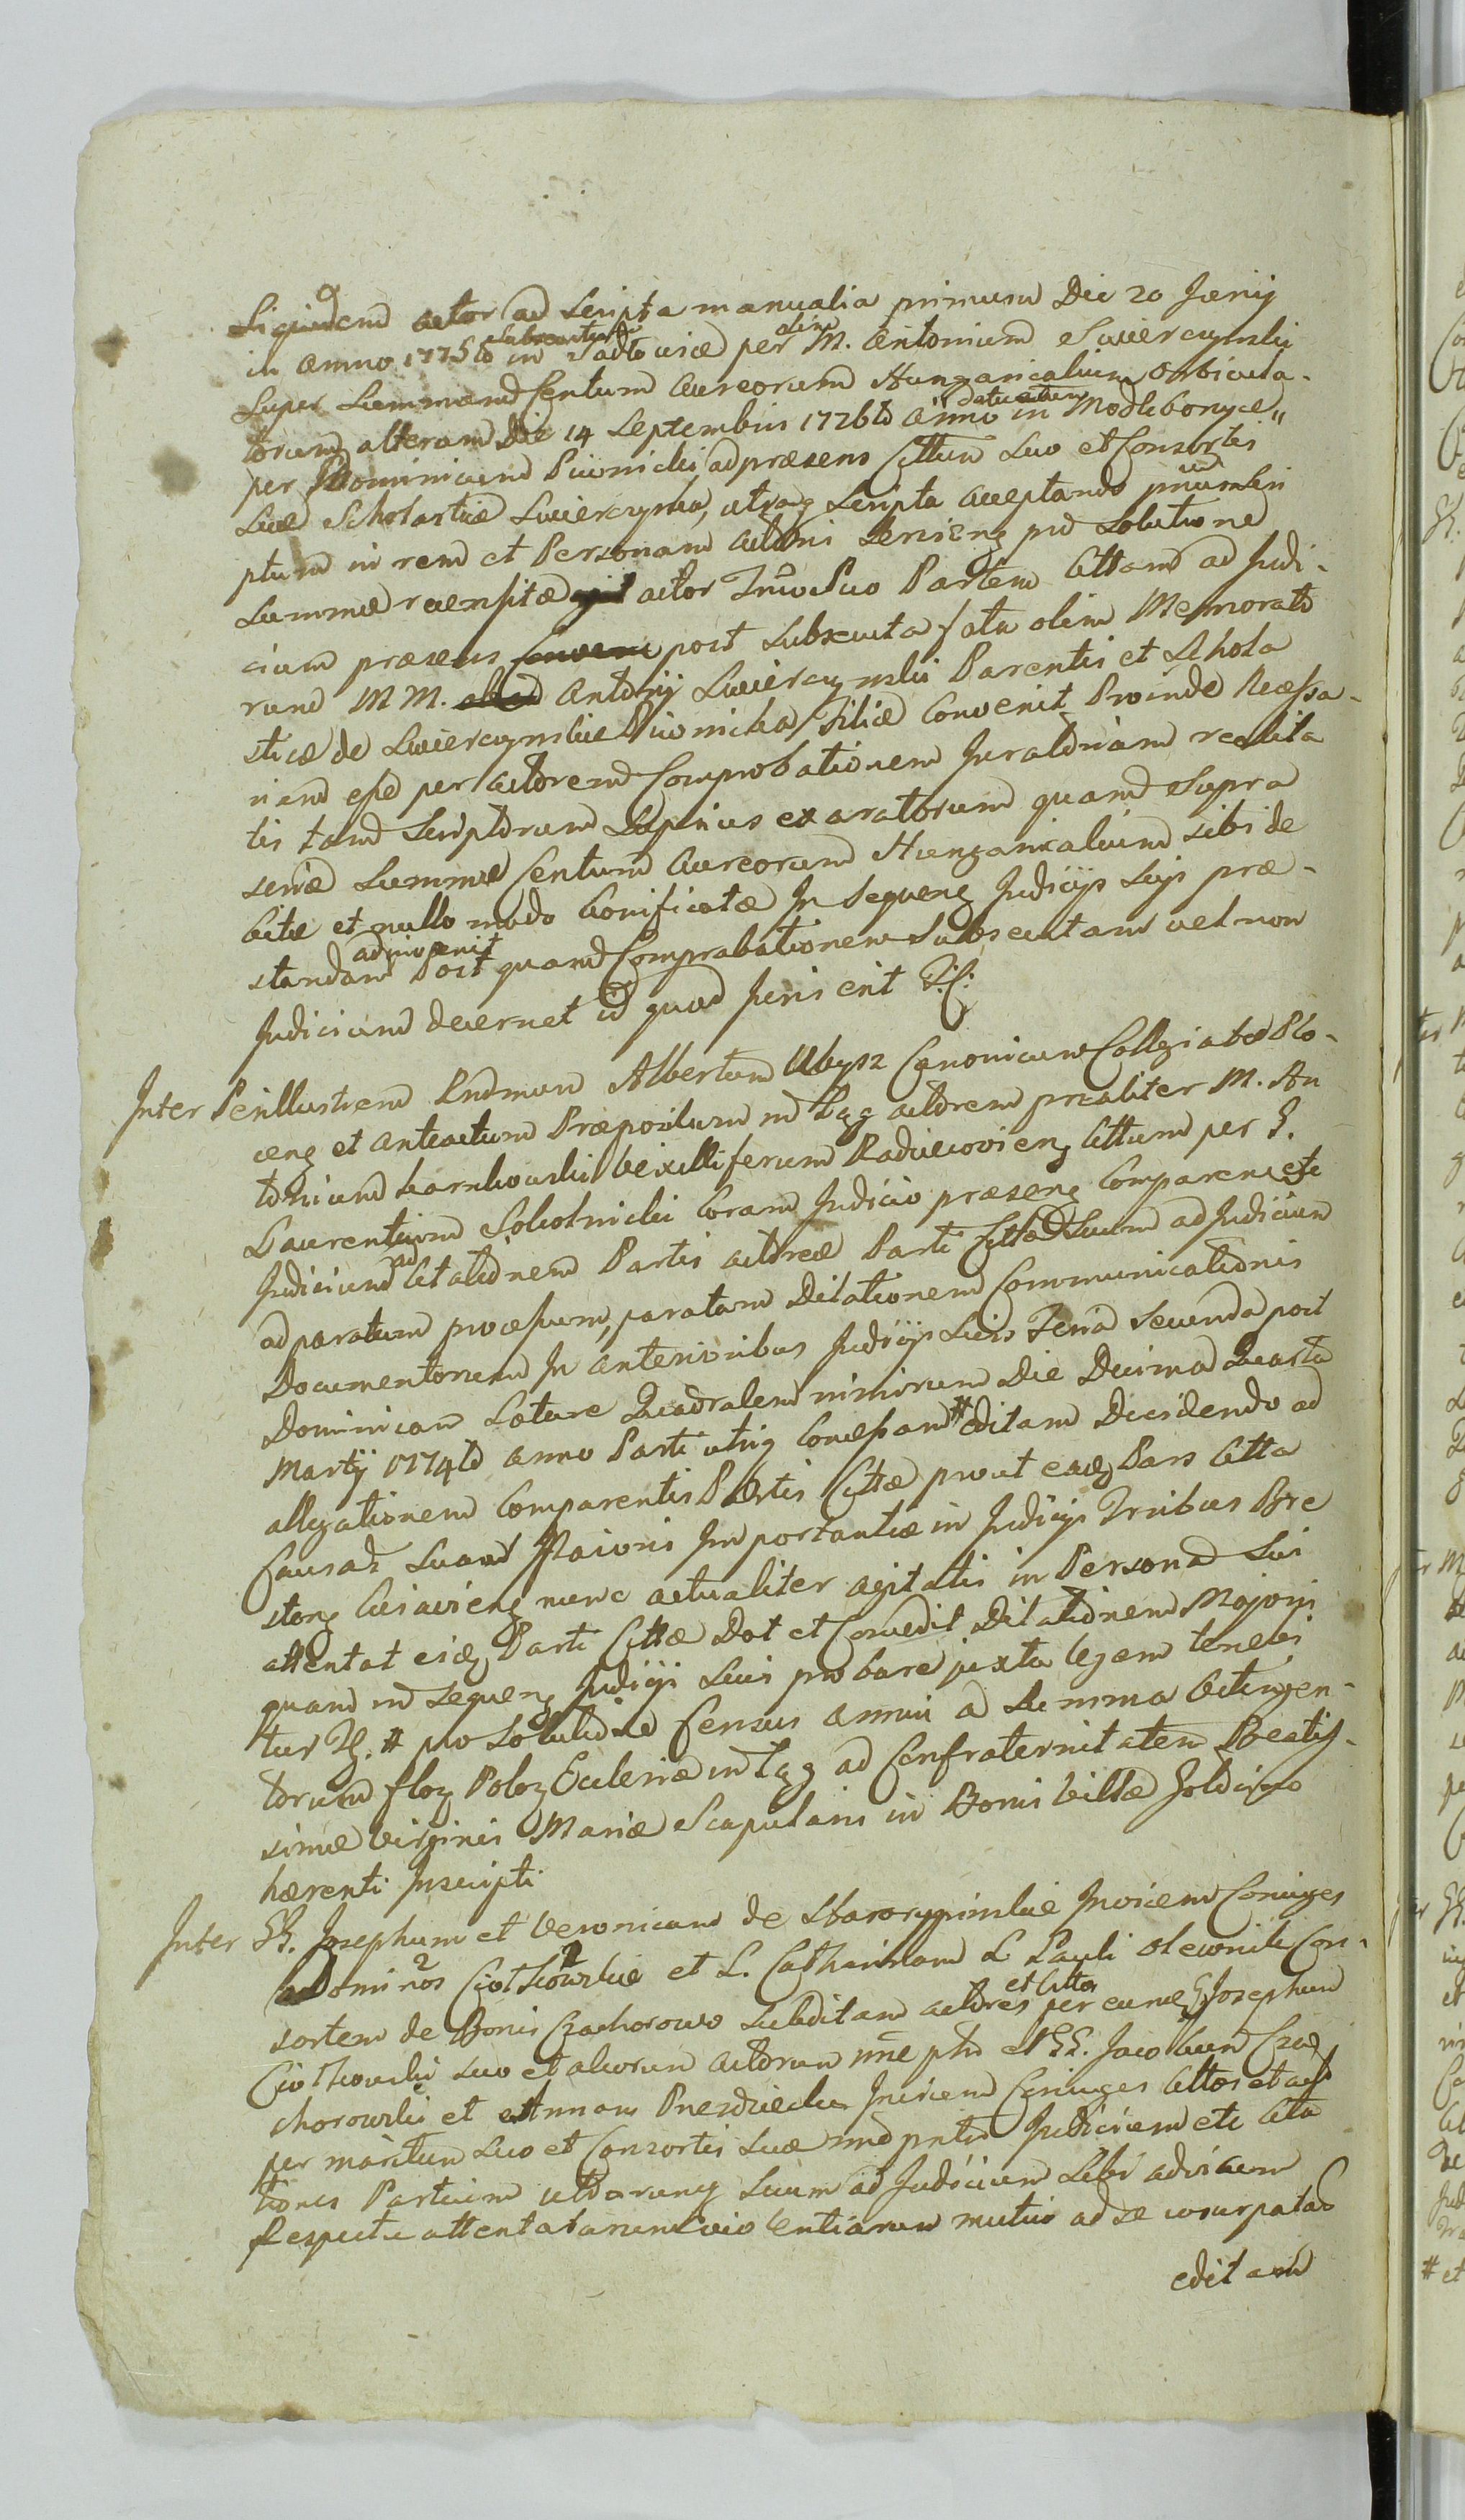 Siquidem actor ad scripta manualia primum Die 20 Junij
in Anno 1775to in Sadlowice subsecuta per olim M. Antonium Swierczynski
super Summam Centum Aureorum Hungaricalium orbicula-
torum alteram Die 14 Septembris 1726to Anno in Modlibozyce datum
per Dominicum Piwnicki ad praesens Cittum suo et Consortis
suae Scholasticae Swierczynska, utraq scripta acceptando
ptum in rem et Personam actori serviens pro solutione
Summae recensitae actor Partem Cittam ad Judi-
cium praesens post subsecuta fata olim Memorato
rum M M. Antonij Swierczynski Parentis et Schola
sticae de Swierczynskie Piwnicka Filiae Convenit Proinde Necessa-
riam esse per actorem Comprobationem Juratoriam realita
tis tam Scriptorum superius exaratorum quam supra
Summae Centum Aureorum Hungaricalium sibi de
bitae et nullo modo bonificatae In sequens Judicijs suis prae-
standam adinvenit Post quam Comprobationem subsecutam vel non
Judicium decernet id quod Juris erit
Inter Perillustrem Rndmum Albertum Ubysz Canonicum Collegiatae Plo-
cens et anteactum Praepositum in Łąg actorem prealiter M. An
tonium Karnkowski Vexilliferum Radziejoviens Cittum per G.
Laurentium Sokolnicki Coram Judicio praesens Comparen etc
Judicium ad Citationem Partis actoreae Parti Cittae Suum ad Judicium
ad paratum processum, paratam Dilationem Communicationis
Documentorum In anterioribus Judicijs suis Feria secunda post
Dominicam Laetare Quadralem nimirum Die Decima Quarta
Martij 1774to Anno Parti utriq Concessam # editam Decidendo ad
allegationem Comparentis Partis Cittae prout eadq Pars Citta
Causas suam Majoris Importantiae in Judicijs Trnibus Bre
stens Cujaviens nunc actualiter agitatis in Persona sui
attentat eidq Parti Cittae Dat et Concedit Dilationem Majoris
quam in sequens Judicijs suis probare juxta legem tenebi
tur # pro solutione Census annui a Summa
torum flor Polon Ecclesiae in Łąg ad Confraternitatem Beatis-
simae Virginis Mariae Scapularis in Bonis Villae
haerenti Inscripti
Inter GG. Josephum et Veronicam de Invicem Coniuges
Ciołkowskie et L. Catharinam L Pauli Con-
sortem de Bonis Czachorowo subditam actores et Cittos per eundq G. Josephum
Ciołkowski suo et aliorum actorum nne ptis et GG. Jacobum Cza
chorowski et Annam Invicem Coniuges Cittos et act
per maritum suo et Consortis suae nne pntes Judicium etc Cita
tiones Partium utdarumq Suum ad Judicium sibi ad invicem
Respectu attentatarum violentiarum mutuo ad se usurpatas
editam